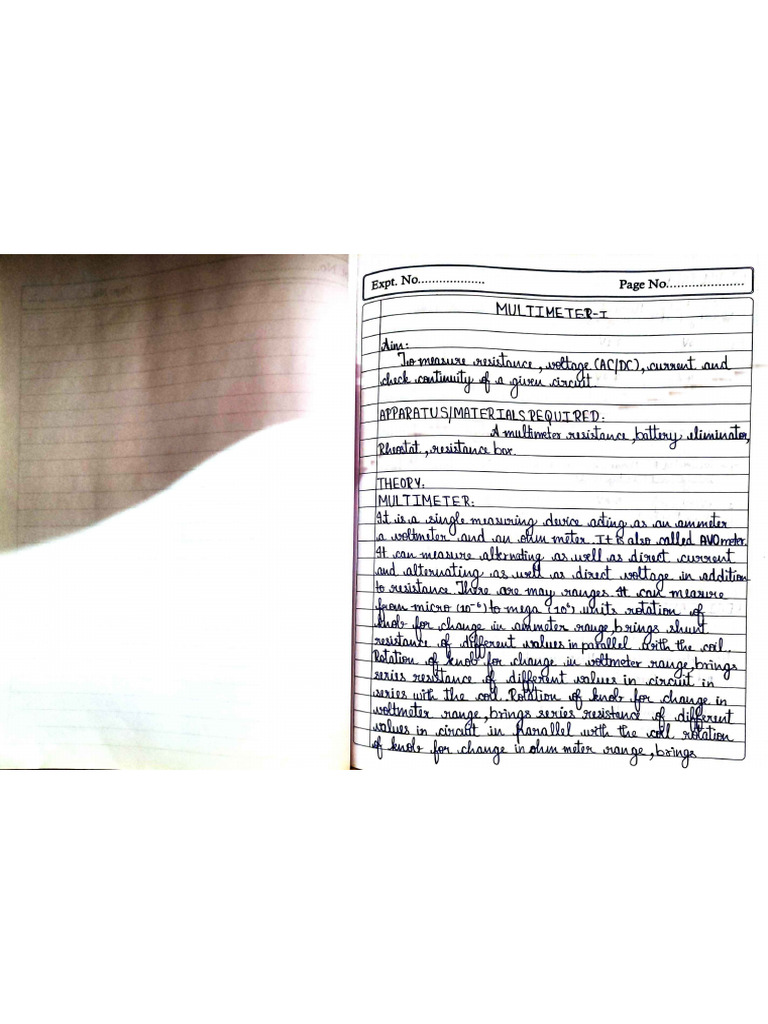 Expt. No..................
Page No.....................
MULTIMETER-I
Aim:
To measure resistance, voltage (AC/DC), current and
check continuity of a given circuit.
APPARATUS/MATERIALS REQUIRED:
A multimeter resistance, battery eliminator,
Rheostat, resistance box.
THEORY:
MULTIMETER:
It is a single measuring device acting as an ammeter
a voltmeter and an ohm meter. It is also called AVO meter.
It can measure alternating as well as direct current
and alternating as well as direct voltage in addition
to resistance. There are may ranges. It can measure
from micro (10⁻⁶) to mega (10⁶) units rotation of
knob for change in ammeter range, brings shunt
resistance of different values in parallel with the coil.
Rotation of knob for change in voltmeter range, brings
series resistance of different values in circuit in
series with the coil. Rotation of knob for change in
voltmeter range, brings series resistence of different
values in circuit in parallel with the coil rotation
of knob for change in ohm meter range, brings